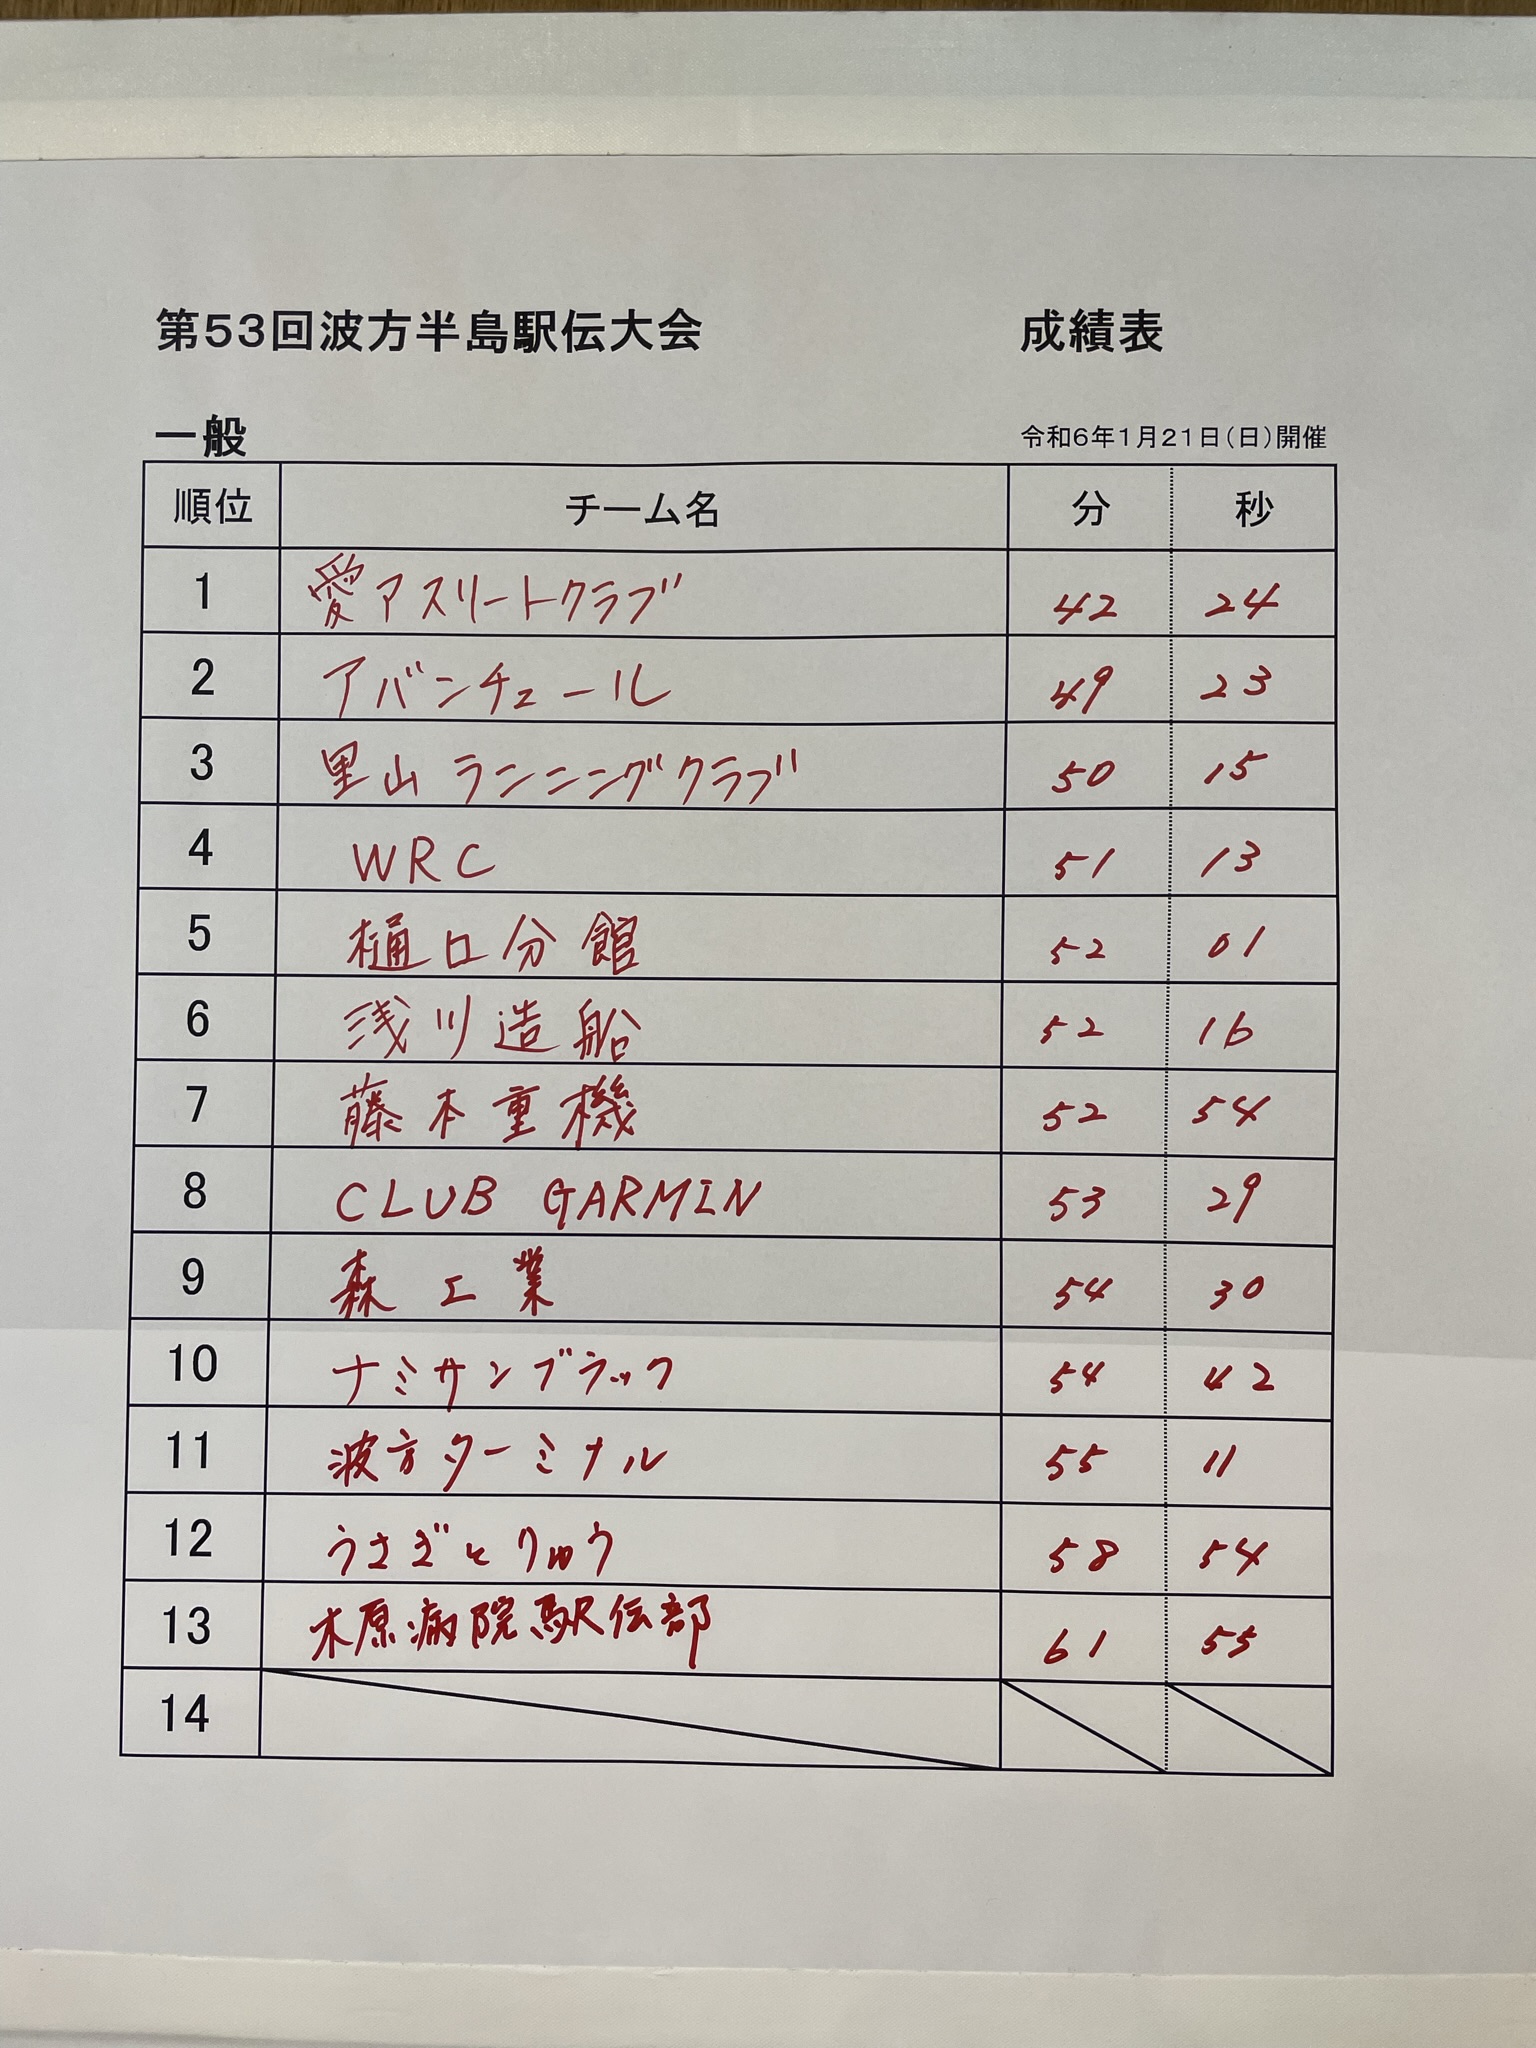 第53回波方半島駅伝大会 成績表
一般 令和6年1月21日(日)開催
順位 チーム名 分 秒
1 愛アスリートクラブ 42 24
2 アバンチュール 49 23
3 里山ランニングクラブ 50 15
4 WRC 51 13
5 樋口分館 52 01
6 浅川造船 52 16
7 藤本重機 52 54
8 CLUB GARMIN 53 29
9 森工業 54 30
10 ナミサンブラック 54 42
11 波方ターミナル 55 11
12 うさぎとりゅう 58 54
13 木原病院駅伝部 61 55
14